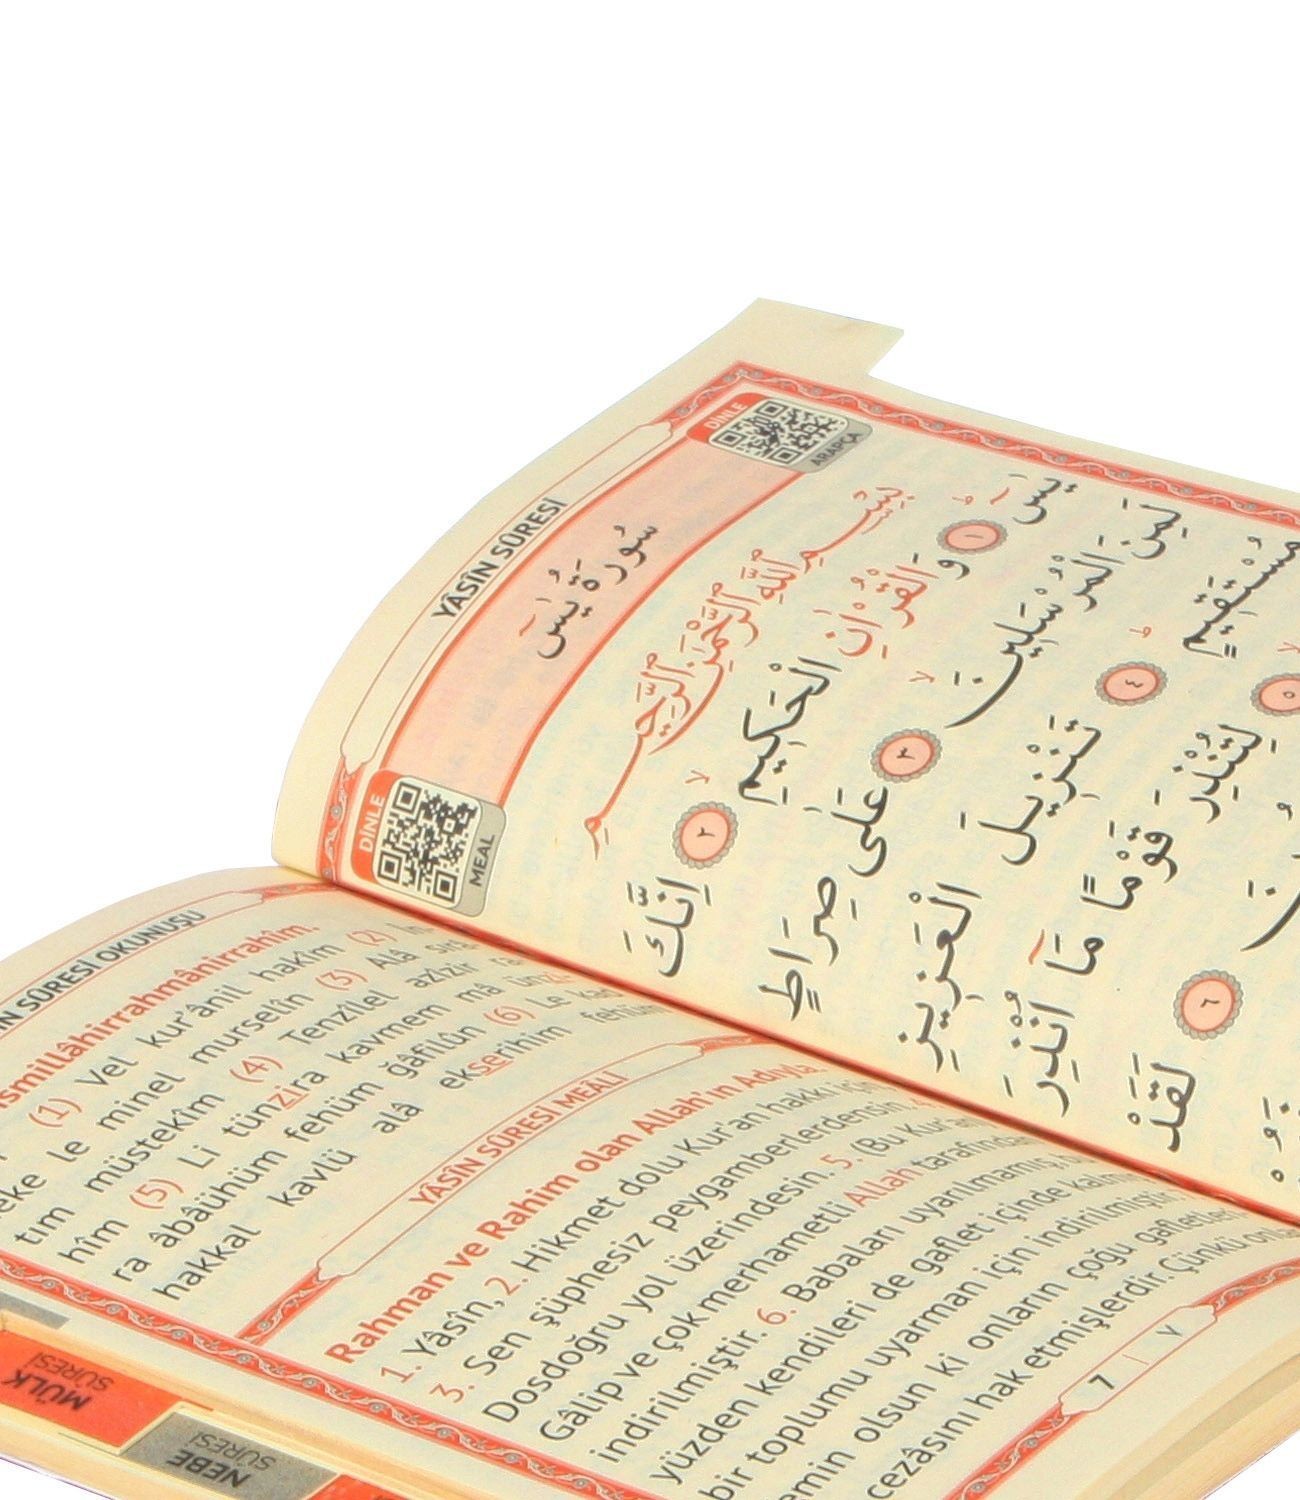 YÂSÎN SÛRESİ
DİNLE
ARAPÇA
سُورَةُ يٰسٓ
DİNLE
MEAL
بِسْمِ اللّٰهِ الرَّحْمٰنِ الرَّحِيمِ
يٰسٓ ﴿١﴾ وَالْقُرْاٰنِ الْحَكِيمِ ﴿٢﴾ اِنَّكَ
لَمِنَ الْمُرْسَلِينَ ﴿٣﴾ عَلٰى صِرَاطٍ
مُسْتَقِيمٍ ﴿٤﴾ تَنْزِيلَ الْعَزِيزِ
﴿٥﴾ لِتُنْذِرَ قَوْمًا مَٓا اُنْذِرَ
﴿٦﴾ لَقَدْ
SÛRESİ OKUNUŞU
(1) Vel kur'ânil hakîm (2)
le minel murselîn (3) Alâ
tım müstekîm (4) Tenzîlel azîzir
hîm (5) Li tünzira kavmem mâ
ra âbâühüm fehüm ğâfilûn (6) Le
hakkal kavlü alâ ekserihim fehüm
YÂSÎN SÛRESİ MEÂLİ
Rahman ve Rahim olan Allah'ın Adıyla.
1. Yâsîn, 2. Hikmet dolu Kur'an hakkı için
3. Sen şüphesiz peygamberlerdensin.
Dosdoğru yol üzerindesin. 5. (Bu Kur'an
Gâlip ve çok merhametli Allah tarafından
indirilmiştir. 6. Babaları uyarılmamış,
yüzden kendileri de gaflet içinde
bir toplumu uyarman için indirilmiştir.
olsun ki onların çoğu
cezâsını hak etmişlerdir. Çünkü
7 | ٧
MÜLK
SÛRESİ
NEBE
SÛRESİ